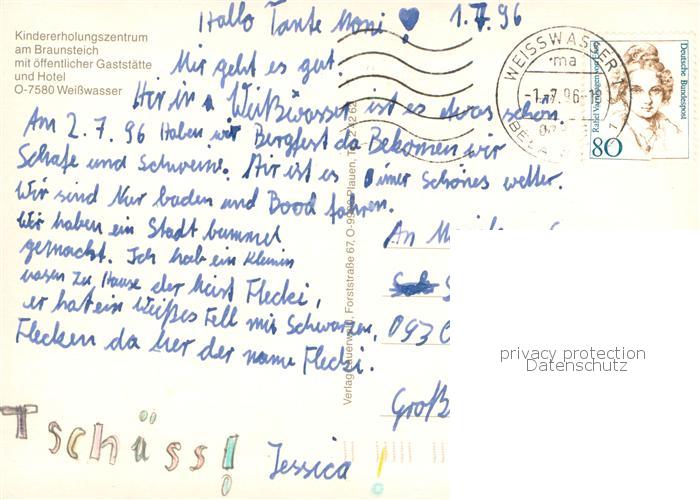 Hallo Tante Moni, 1.7.96
Kindererholungszentrum
am Braunsteich
mit öffentlicher Gaststätte
und Hotel
O-7580 Weißwasser
Mir geht es gut.
Hir in Weißwasser ist es etwas schon.
Am 2.7.96 Haben wir Bergfest da Bekomen wir
Schafe und Schweine. Hir ist es imer Schönes wetter.
Wir sind Nur baden und Bood fahren.
Wir haben ein Stadt bummel
gemacht. Ich hab ein Kleinin
hasen Zu Hause der heist Flecki,
er hat ein Weißes Fell mit Schwarzen,
Flecken da her der name Flecki.
Tschüss!
Jessica!
An
0930
Groß
WEISSWASSER
ma
-1.-7.96-19
Deutsche Bundespost
80
Verlag Bauerwelt, Forststraße 67, O-9900 Plauen, Tel. 2 42 62
privacy protection
Datenschutz